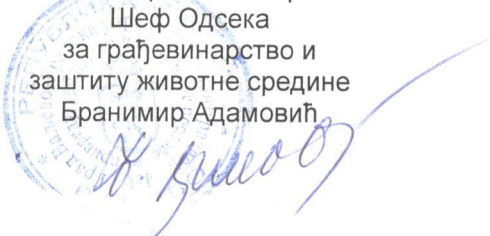 Шеф Одсека
за грађевинарство и
заштиту животне средине
Бранимир Адамовић